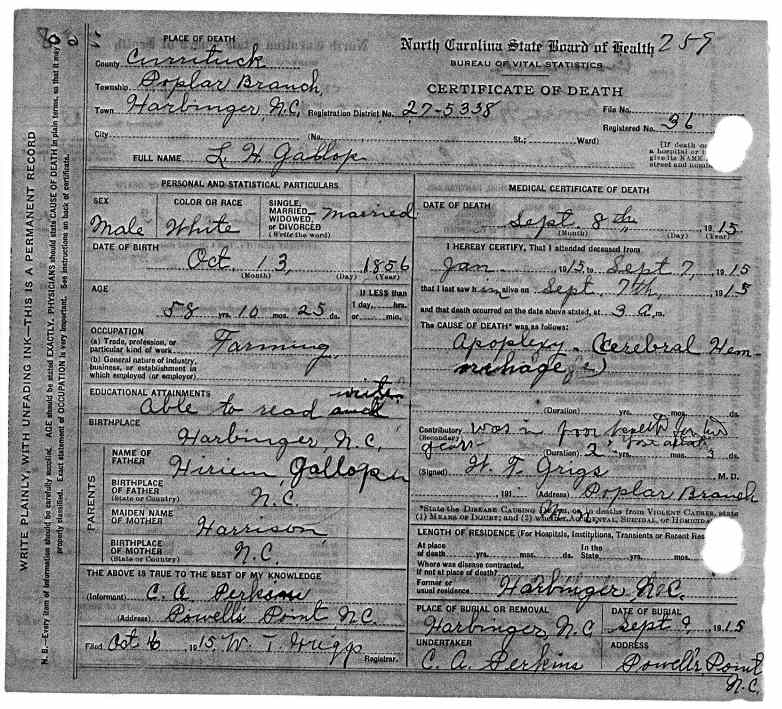 PLACE OF DEATH
County Currituck
Township Poplar Branch,
Town Harbinger, N.C. Registration District No. 27-5338
City (No. St.; Ward)
FULL NAME L. H. Gallop
North Carolina State Board of Health 259
BUREAU OF VITAL STATISTICS
CERTIFICATE OF DEATH
File No.
Registered No. 36
[If death oc
a hospital or i
give its NAME
street and numb
WRITE PLAINLY, WITH UNFADING INK—THIS IS A PERMANENT RECORD
N. B.—Every item of information should be carefully supplied. AGE should be stated EXACTLY. PHYSICIANS should state CAUSE OF DEATH in plain terms, so that it may
properly classified. Exact statement of OCCUPATION is very important. See instructions on back of certificate.
PERSONAL AND STATISTICAL PARTICULARS
SEX
Male
COLOR OR RACE
White
SINGLE,
MARRIED,
WIDOWED,
or DIVORCED
(Write the word)
married
DATE OF BIRTH
Oct. 13, 1856
(Month) (Day) (Year)
AGE
58 yrs. 10 mos. 25 ds.
If LESS than
1 day, hrs.
or min.
OCCUPATION
(a) Trade, profession, or
particular kind of work
Farming
(b) General nature of industry,
business, or establishment in
which employed (or employer)
EDUCATIONAL ATTAINMENTS
Able to read and write
BIRTHPLACE
Harbinger, N.C.
PARENTS
NAME OF
FATHER
Hiriem Gallop
BIRTHPLACE
OF FATHER
(State or Country)
N.C.
MAIDEN NAME
OF MOTHER
Harrison
BIRTHPLACE
OF MOTHER
(State or Country)
N.C.
THE ABOVE IS TRUE TO THE BEST OF MY KNOWLEDGE
(Informant) C. A. Perkins
(Address) Powells Point N.C.
Filed Oct 16 1915, W. T. Griggs
Registrar.
MEDICAL CERTIFICATE OF DEATH
DATE OF DEATH
Sept. 8th, 1915
(Month) (Day) (Year)
I HEREBY CERTIFY, That I attended deceased from
Jan 1915, to Sept 7, 1915
that I last saw him alive on Sept. 7th, 1915
and that death occurred on the date above stated, at 3 a.m.
The CAUSE OF DEATH* was as follows:
Apoplexy. (Cerebral Hem-
(Duration) yrs. mos. ds.
Contributory was in poor health for
(Secondary)
years (Duration) 2 yrs. mos. 3 ds.
(Signed) W. T. Grigs M. D.
191 (Address) Poplar Branch
*State the DISEASE CAUSING DEATH, or, in deaths from VIOLENT CAUSES, state
(1) MEANS OF INJURY; and (2) whether ACCIDENTAL, SUICIDAL, or HOMICIDA
LENGTH OF RESIDENCE (For Hospitals, Institutions, Transients or Recent Res
At place
of death yrs. mos. ds.
In the
State, yrs. mos.
Where was disease contracted,
if not at place of death?
Former or
usual residence Harbinger N.C.
PLACE OF BURIAL OR REMOVAL
Harbinger, N.C
DATE OF BURIAL
Sept 9, 1915
UNDERTAKER
C. A. Perkins
ADDRESS
Powells Point
N.C.